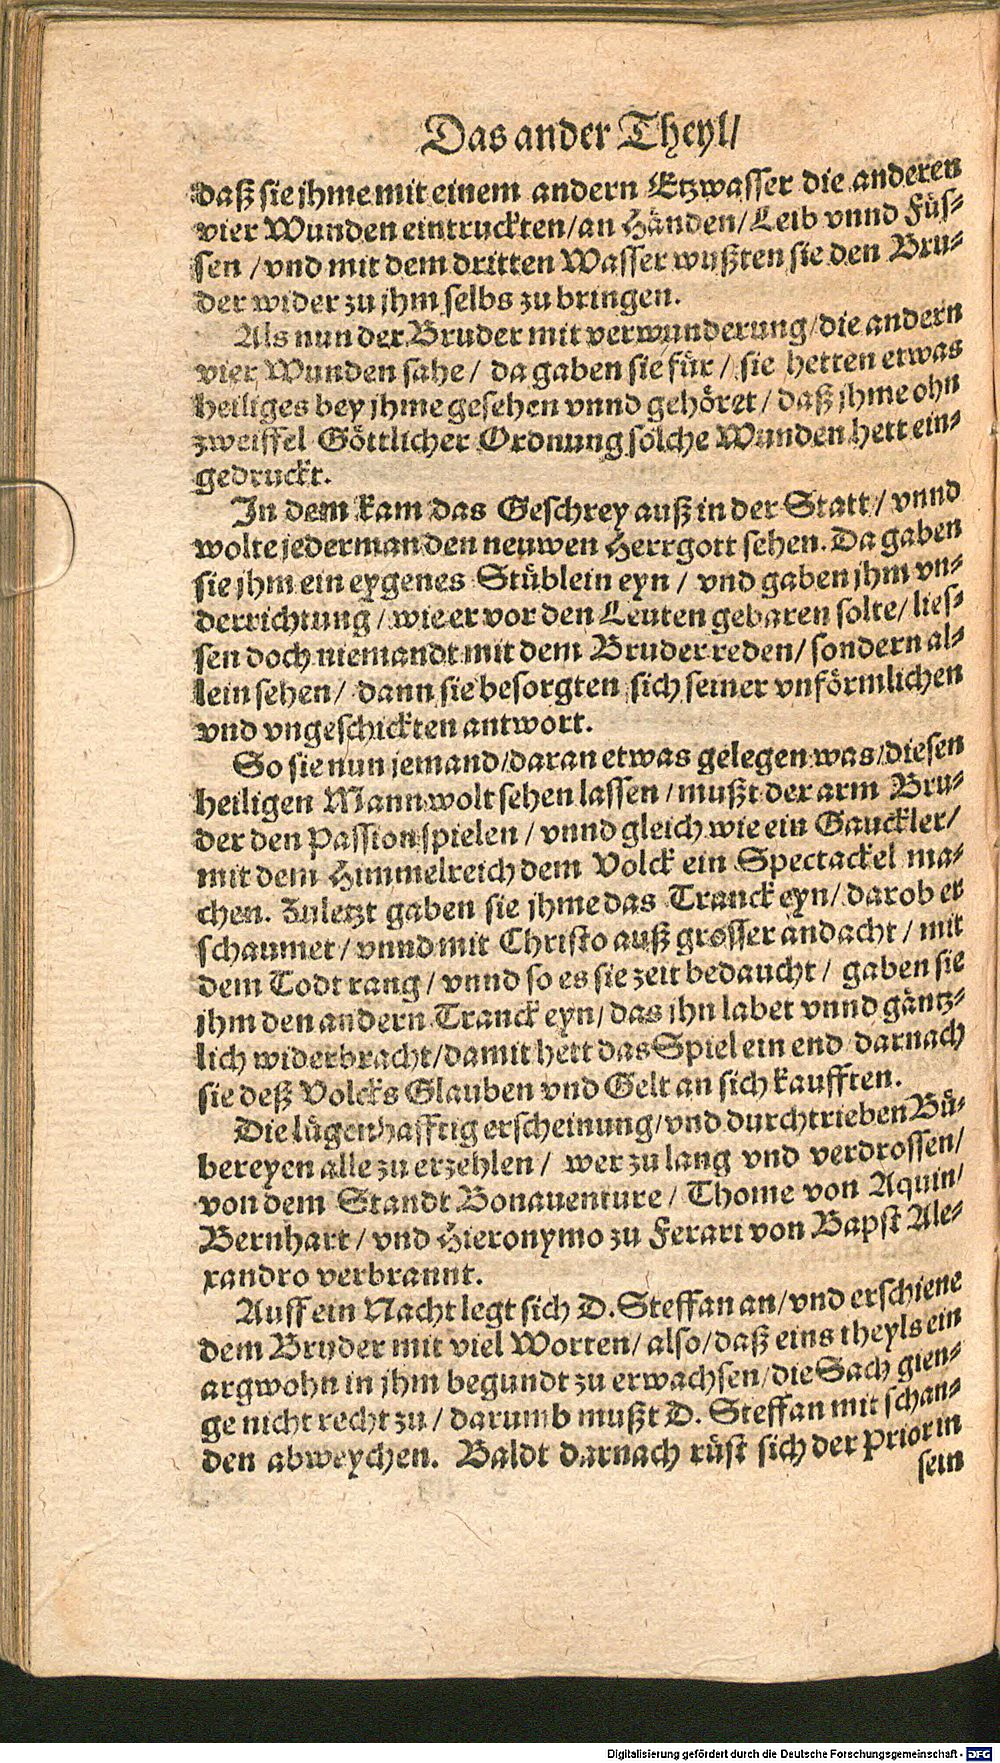 Das ander Theyl/
daß sie jhme mit einem andern Etzwasser die anderen
vier Wunden eintruckten/an Händen/Leib vnnd Füs-
sen /vnd mit dem dritten Wasser wußten sie den Bru-
der wider zu jhm selbs zu bringen.
Als nun der Bruder mit verwunderung/die andern
vier Wunden sahe/ da gaben sie für / sie hetten etwas
heiliges bey jhme gesehen vnnd gehöret/ daß jhme ohn
zweiffel Göttlicher Ordnung solche Wunden hett ein-
gedruckt.
In dem kam das Geschrey auß in der Statt/ vnnd
wolte jederman den neuwen Herrgott sehen. Da gaben
sie jhm ein eygenes Stüblein eyn / vnd gaben jhm vn-
derrichtung / wie er vor den Leuten gebaren solte/ lies-
sen doch niemandt mit dem Bruder reden/ sondern al-
lein sehen/ dann sie besorgten sich seiner vnförmlichen
vnd vngeschickten antwort.
So sie nun jemand/daran etwas gelegen was/diesen
heiligen Mann wolt sehen lassen /mußt der arm Bru-
der den Passion spielen / vnnd gleich wie ein Gauckler/
mit dem Himmelreich dem Volck ein Spectackel ma-
chen. Zuletzt gaben sie jhme das Tranck eyn/ darob er
schaumet/ vnnd mit Christo auß grosser andacht / mit
dem Todt rang / vnnd so es sie zeit bedaucht / gaben sie
jhm den andern Tranck eyn/ das jhn labet vnnd gäntz-
lich widerbracht/damit hett das Spiel ein end darnach
sie deß Volcks Glauben vnd Gelt an sich kaufften.
Die lügenhafftig erscheinung/vnd durchtrieben Bü-
bereyen alle zu erzehlen / wer zu lang vnd verdrossen/
von dem Standt Bonauenture / Thome von Aquin/
Bernhart / vnd Hieronymo zu Ferari von Bapst Ale-
xandro verbrannt.
Auff ein Nacht legt sich D. Steffan an/vnd erschiene
dem Bruder mit viel Worten/ also/daß eins theyls ein
argwohn in jhm begundt zu erwachsen/die Sach gien-
ge nicht recht zu / darumb mußt D. Steffan mit schan-
den abweychen. Baldt darnach rüst sich der Prior in
sein
Digitalisierung gefördert durch die Deutsche Forschungsgemeinschaft - DFG